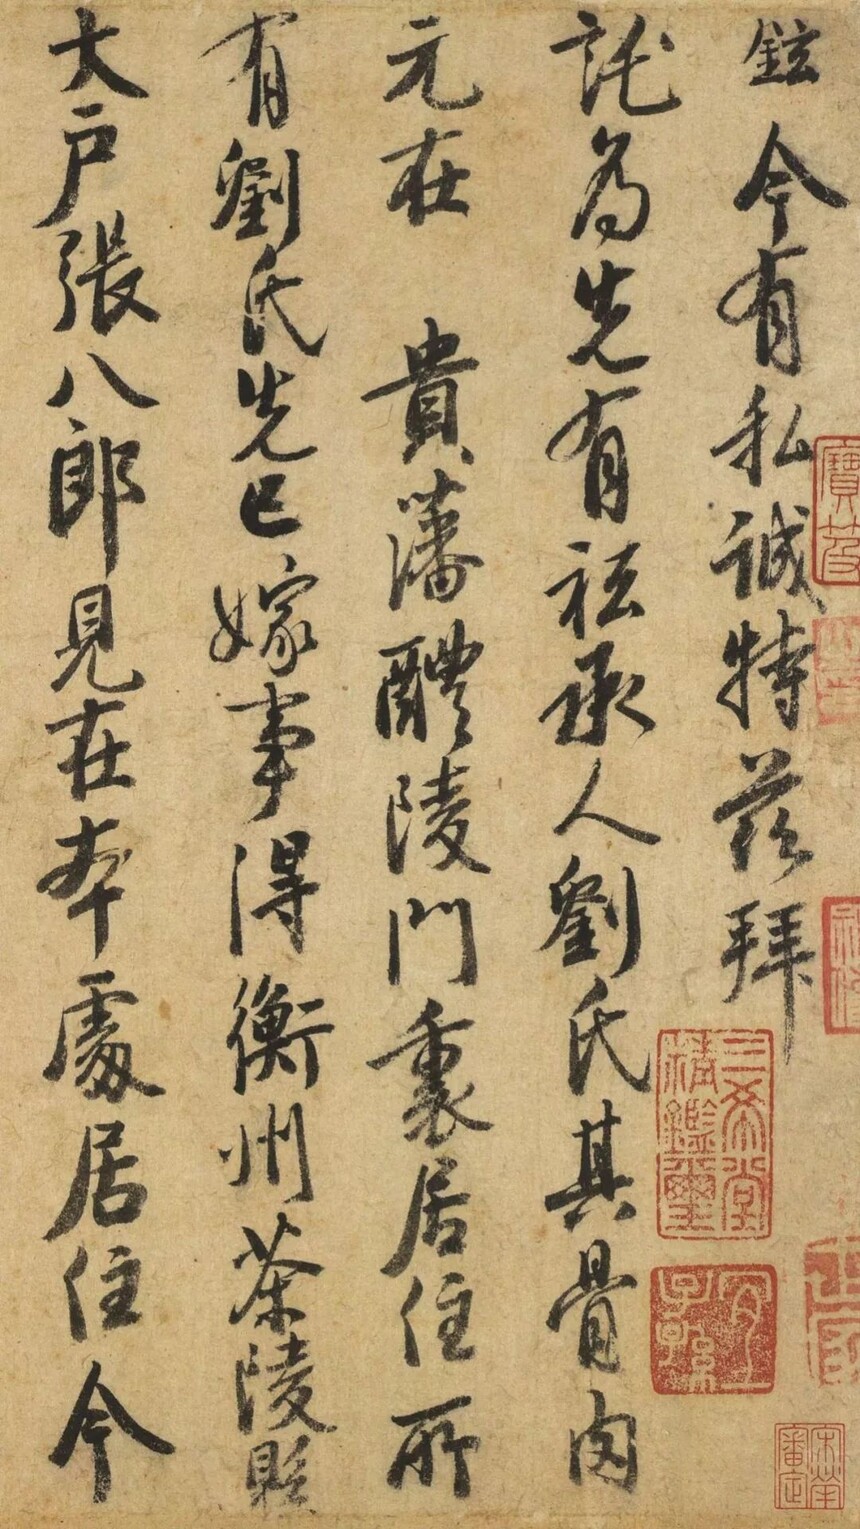 鉉今有私誠特茲拜
託為先有祗承人劉氏其骨肉
元在 貴藩醴陵門裏居住所
有劉氏先已嫁事得衡州茶陵縣
大戶張八郎見在本處居住今
三希堂精鑑璽
宜子孫